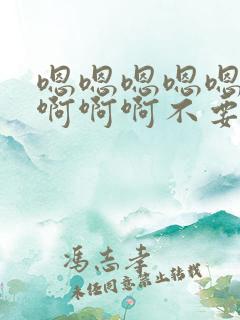 嗯嗯嗯嗯嗯
啊啊啊不要
冯志孝
未经同意禁止转载